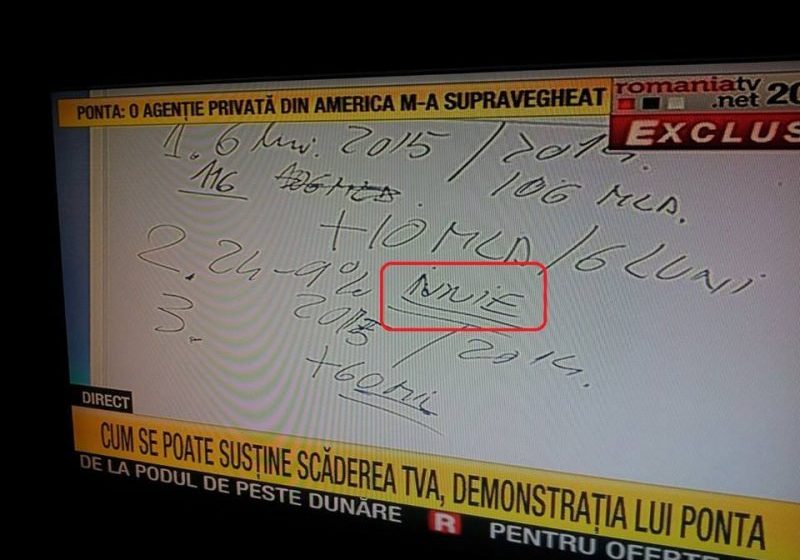 PONTA: O AGENȚIE PRIVATĂ DIN AMERICA M-A SUPRAVEGHEAT
romaniatv
.net
20
EXCLUS
1. 6 luni. 2015 / 2014.
116 106 MLD. 106 MLD.
+10 MLD / 6 LUNI
2. 24 - 9% iNNiE
3. 2015 / 2014.
+60 mii
DIRECT
CUM SE POATE SUSȚINE SCĂDEREA TVA, DEMONSTRAȚIA LUI PONTA
DE LA PODUL DE PESTE DUNĂRE R PENTRU OFERT